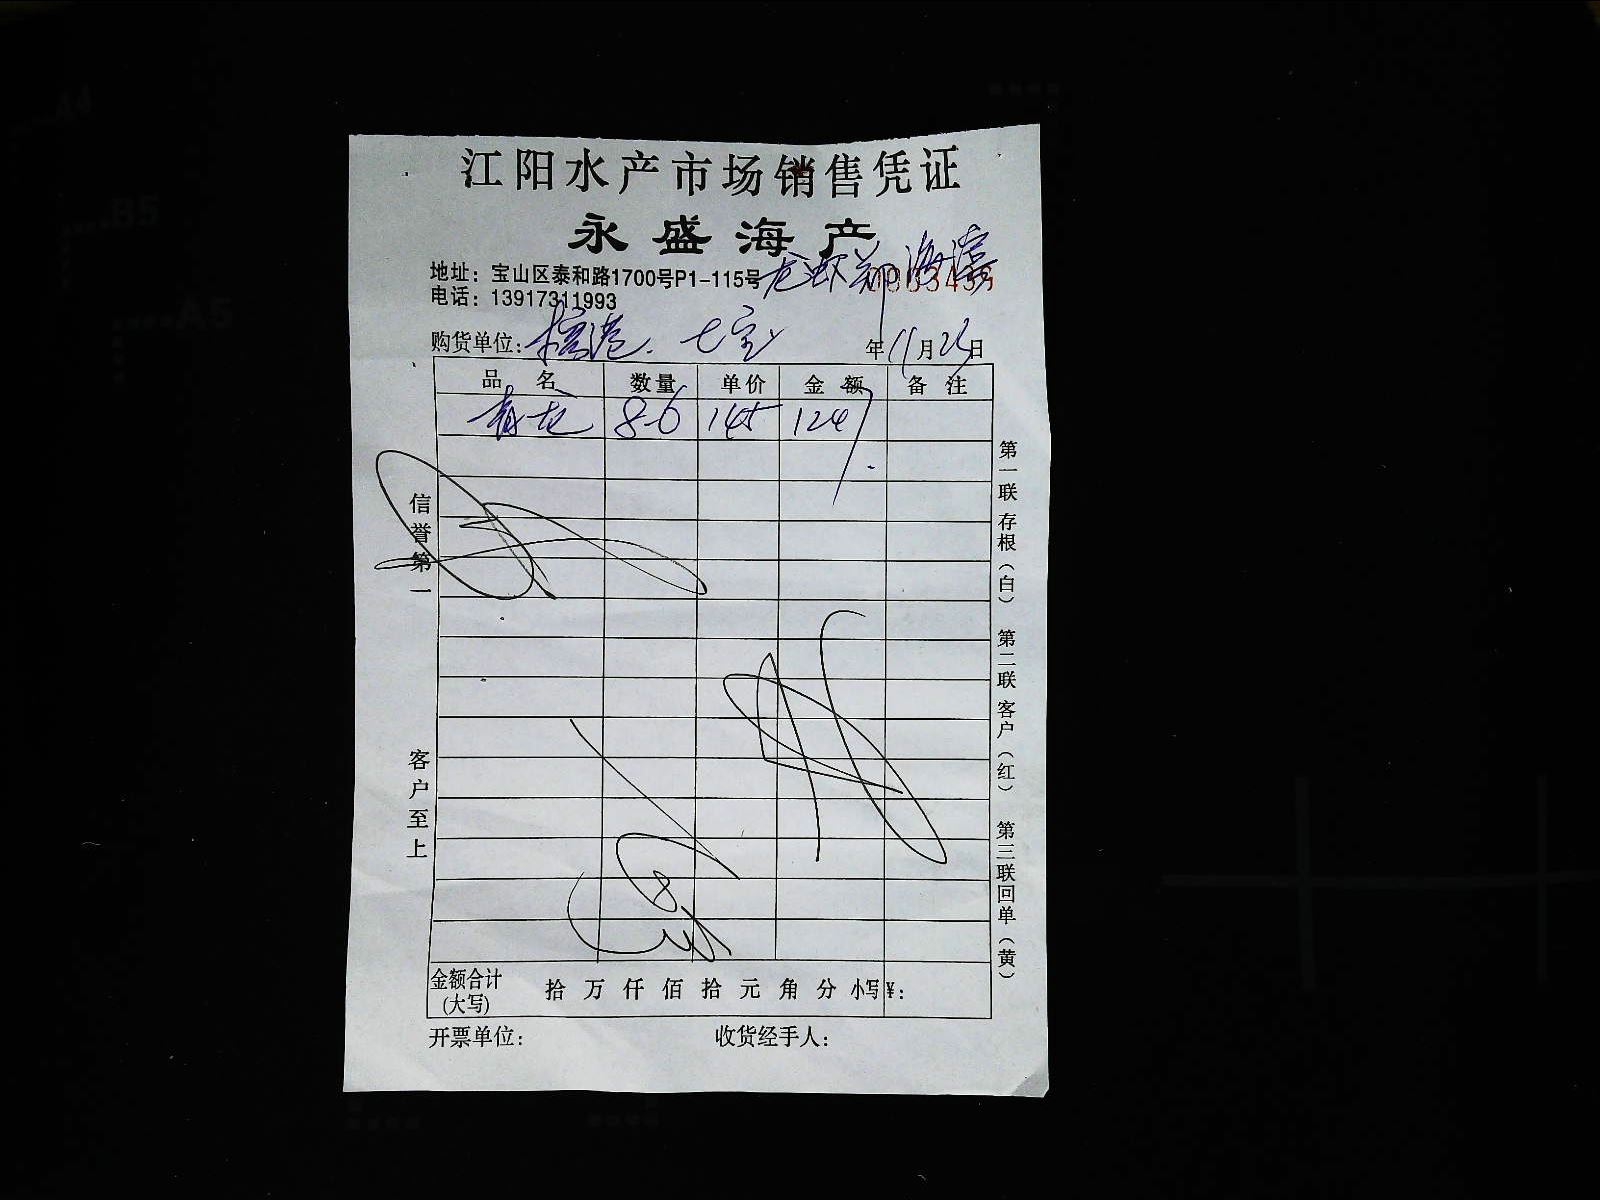 江阳水产市场销售凭证
永盛海产
地址：宝山区泰和路1700号P1-115号
电话：13917311993
购货单位： 七宝 年11月25日
品名 数量 单价 金额 备注
青龙 8.6 145 1247
信誉第一
客户至上
第一联 存根（白） 第二联 客户（红） 第三联 回单（黄）
金额合计（大写） 拾 万 仟 佰 拾 元 角 分 小写¥：
开票单位： 收货经手人：